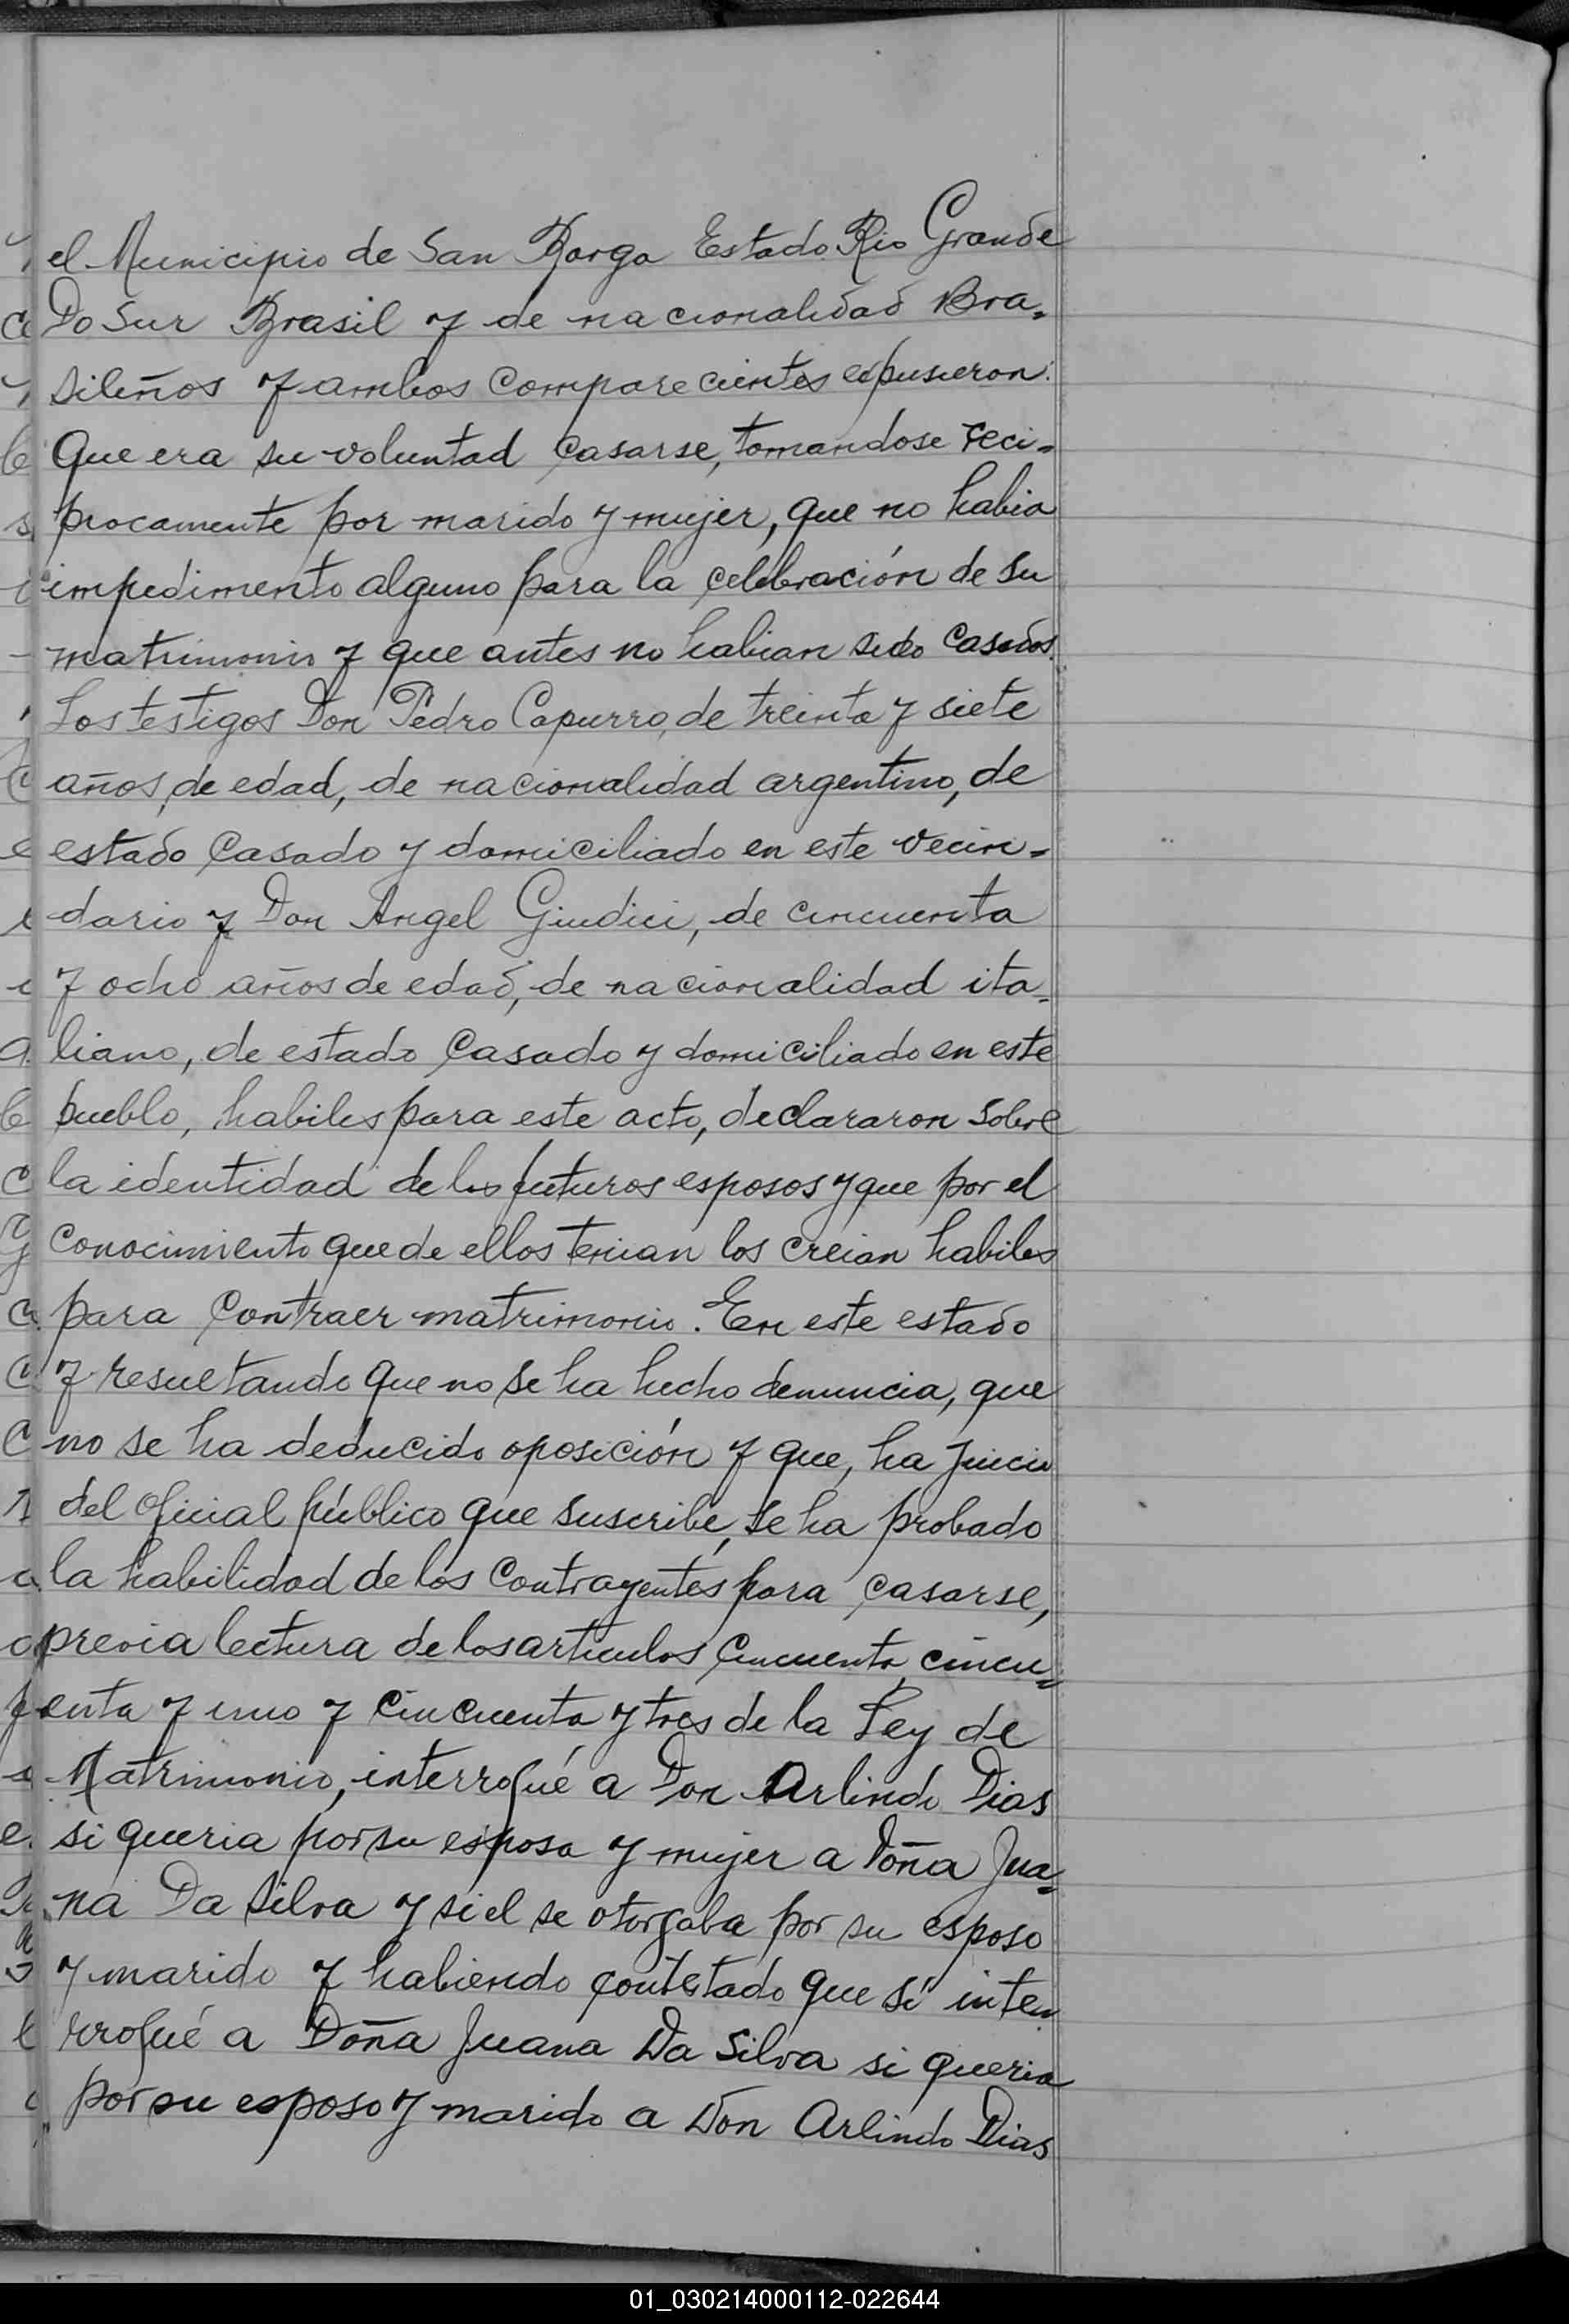 el Municipio de San Borga Estado Rio Grande
Do Sur Brasil y de nacionalidad Bra=
sileños y ambos comparecientes expusieron:
Que era su voluntad casarse, tomandose reci=
procamente por marido y mujer, que no habia
impedimento alguno para la celebración de su
matrimonio y que antes no habian sido casados.
Los testigos Don Pedro Capurro, de treinta y siete
años, de edad, de nacionalidad argentino, de
estado casado y domiciliado en este vecin=
dario y Don Angel Giudici, de cincuenta
y ocho años de edad, de nacionalidad ita=
liano, de estado casado y domiciliado en este
pueblo, habiles para este acto, declararon sobre
la identidad de los futuros esposos y que por el
conocimiento que de ellos tenian los creian habiles
para contraer matrimonio. En este estado
y resultando que no se ha hecho denuncia, que
no se ha deducido oposición y que, ha juicio
del oficial público que suscribe, se ha probado
la habilidad de los contrayentes para casarse,
previa lectura de los articulos cincuenta, cincu=
enta y uno y cincuenta y tres de la Ley de
Matrimonio, interrogué a Don Arlindo Dias
si queria por su esposa y mujer a Doña Jua=
na Da Silva y si el se otorgaba por su esposo
y marido y habiendo contestado que si inte=
rrogué a Doña Juana Da Silva si queria
por su esposo y marido a Don Arlindo Dias
01_030214000112-022644